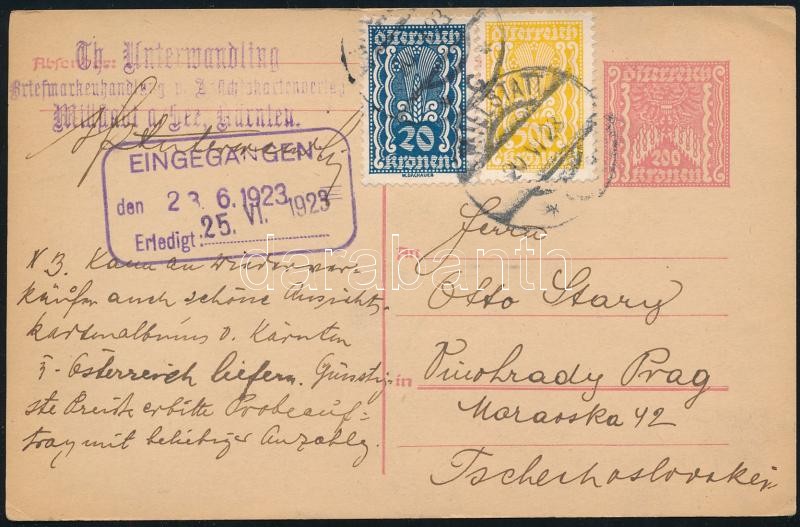 Absender:
Th. Unterwandling
Briefmarkenhandlung u. Ansichtskartenverlag
Millstatt a. See, Kärnten.
EINGEGANGEN
den 23. 6. 1923
Erledigt: 25. VI. 1923
österreich
20
kronen
W. DACHAUER
österreich
kronen
MILLSTATT
Österreich
200
kronen
An
Herrn
Otto Stary
in Vinohrady Prag
Moravska 42
Tschechoslovakei
N B. Kann an Wiederver-
käufer auch schöne Ansichts-
kartenalbums v. Kärnten
Österreich liefern. Günstig-
ste Preise erbitte Probeauf-
trag mit beliebiger Anzahlg.
darabanth